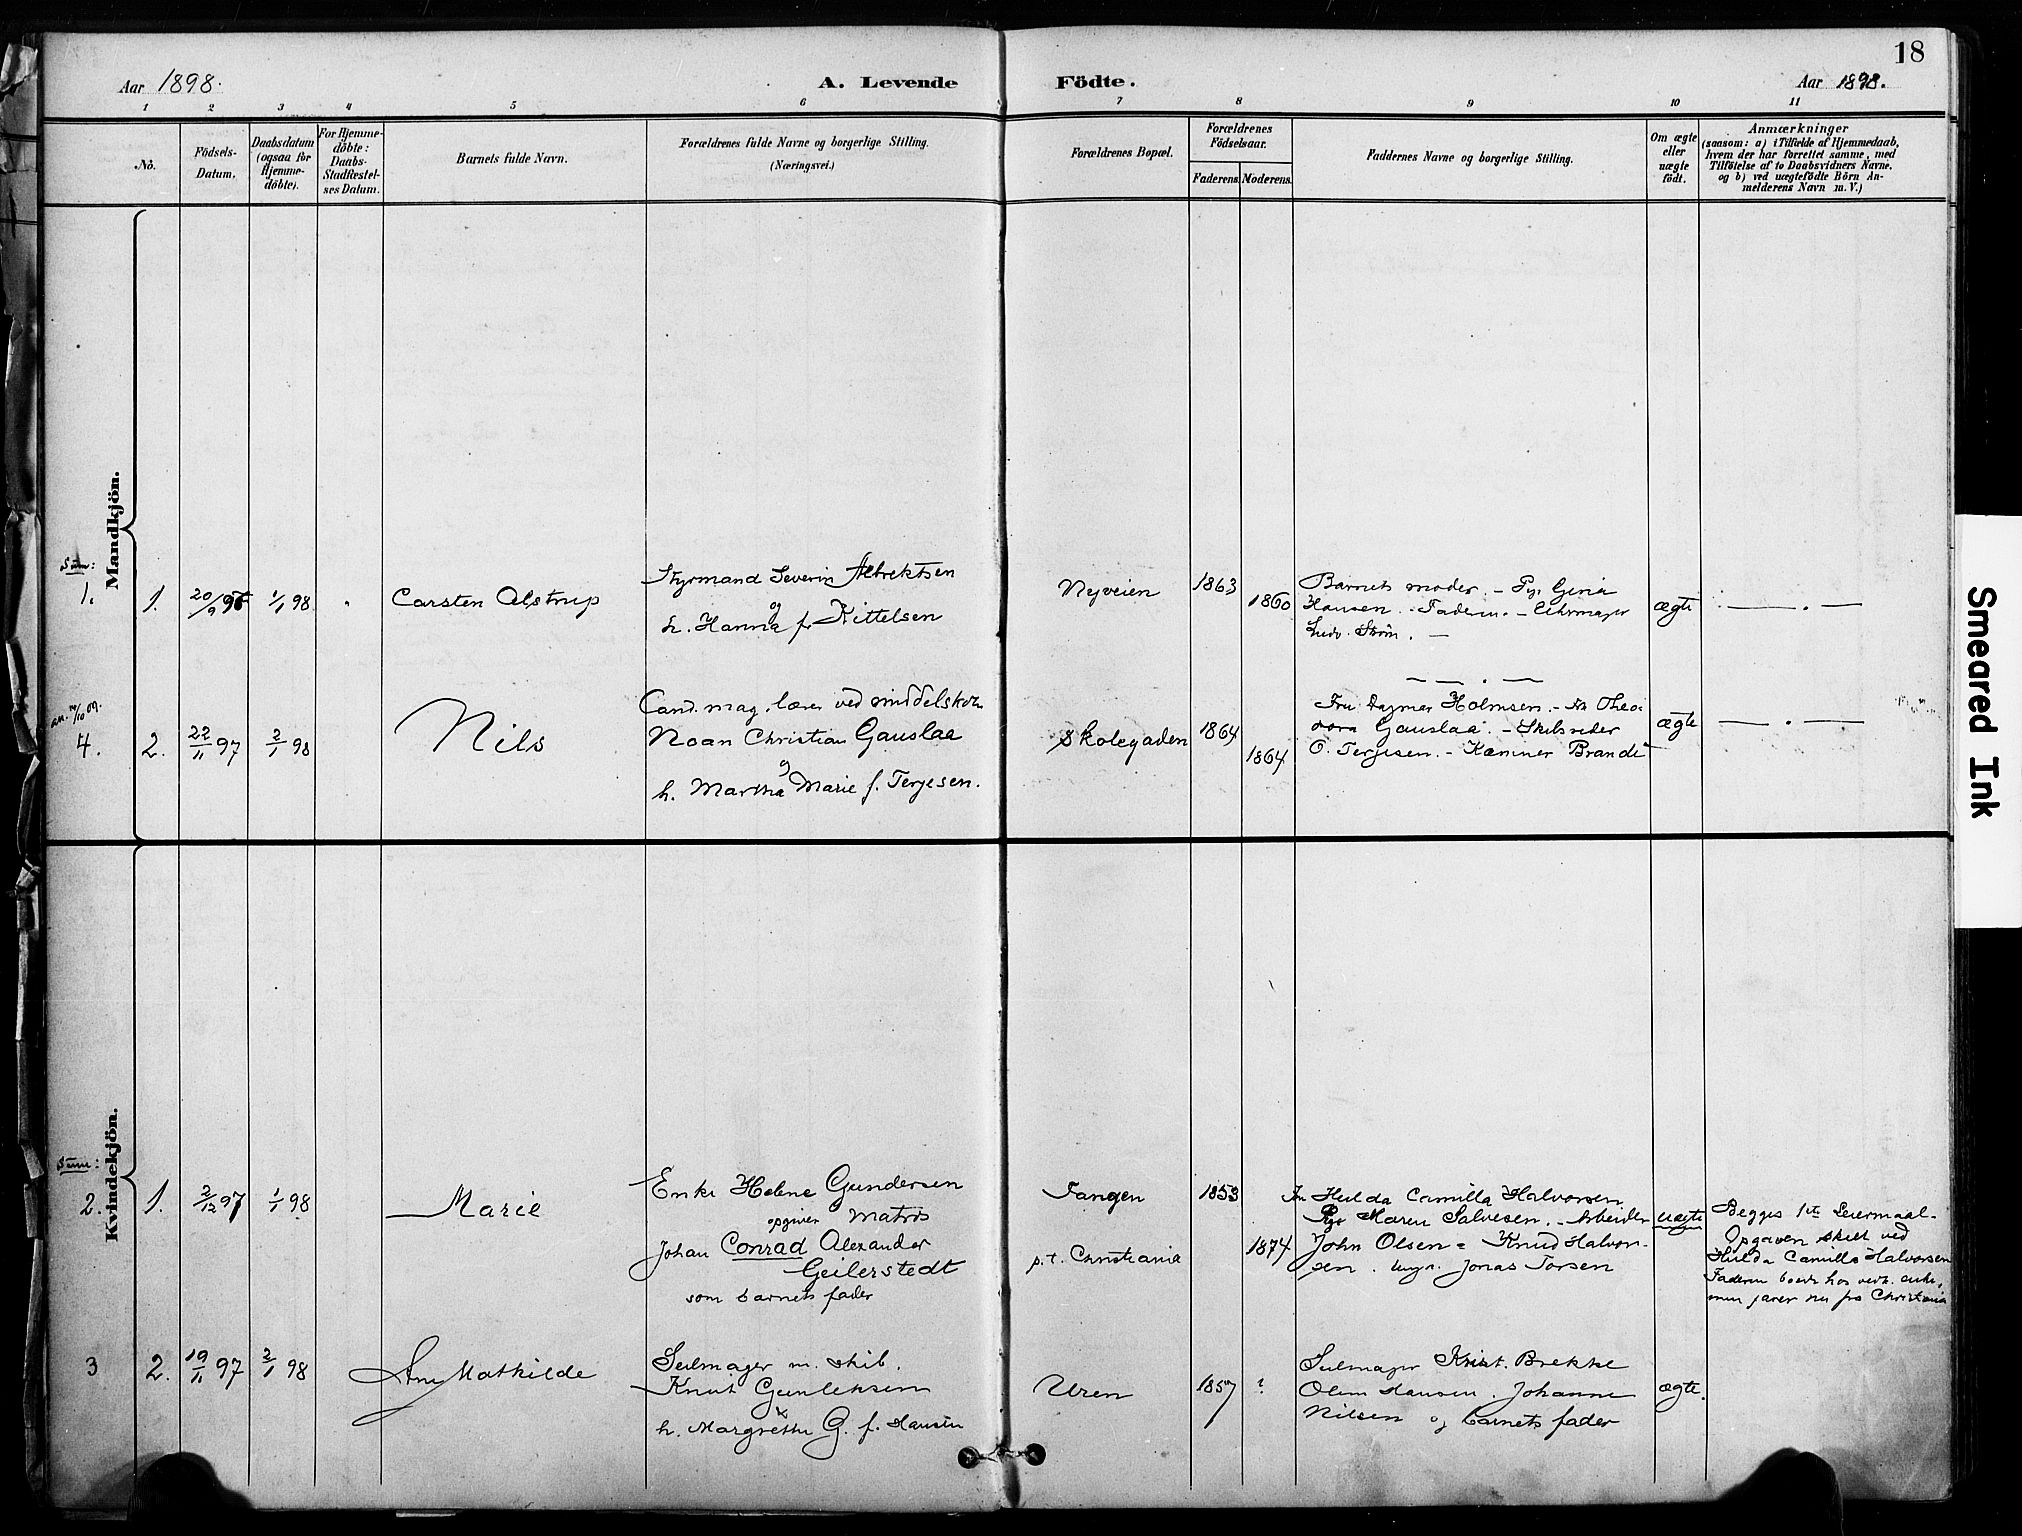 18
Aar 1898.
A. Levende Födte.
Aar 1898.
1 2 3 4 5 6 7 8 9 10 11
No.
Födsels-Datum.
Daabsdatum (ogsaa for Hjemme-döbte).
For Hjemme-döbte: Daabs-Stadfæstel-ses Datum.
Barnets fulde Navn.
Forældrenes fulde Navne og borgerlige Stilling.
(Næringsvei.)
Forældrenes Bopæl.
Forældrenes Födselsaar.
Faderens. Moderens.
Faddernes Navne og borgerlige Stilling.
Om ægte eller uægte født.
Anmærkninger
(saasom: a) i Tilfælde af Hjemmedaab,
hvem der har forrettet samme, med
Tilföielse af to Daabsvidners Navne,
og b) ved uægtefödte Börn An-
melderens Navn m. V.)
Mandkjön.
1. 1. 20/9 1/1 98. Carsten Alstrup
Styrmand Severin Albrektsen
og
h. Hanna f. Kittelsen
Nyveien 1863 1860
Barnets moder. - Pige Gina
Hansen. - Faderen. - Uhrmager
Ludv. Strøm. -
ægte
4. 2. 22/11 97 2/1 98 Nils
Cand. mag. lærer ved middelskolen
Noan Christian Gauslaa
og
h. Martha Marie f. Terjesen.
Skolegaden 1864 1864
Fru Dagmar Holmsen. - Theo-
dora Gauslaa. - Skibsreder
O. Terjesen. - Kæmner Brandt
ægte
Kvindekjön.
2. 1. 2/12 97 1/1 98 Marie
Enke Helene Gundersen
opgiver Matros
Johan Conrad Alexander
Geilerstedt
som barnets fader
Tangen 1853
p.t. Christiania 1874
Hulda Camilla Halvorsen
Pige Maren Salvesen. - Arbeider
John Olsen = Knud Halvor-
sen. Ungk. Jonas Torsen
uægte
Begges 1ste Leiermaal.
Opgaven skeet ved
Hulda Camilla Halvorsen
Faderen boede hos enke,
men farer nu fra Christiania
3 2. 19/11 97 2/1 98 Ane Mathilde
Seilmager m. skib.
Knut Gunleksen
h. Margrethe G. f. Hansen
Uren 1857 ?
Seilmager Krist. Brekke
Olem Hansen. Johanne
Nilsen og barnets fader
ægte.
Smeared Ink